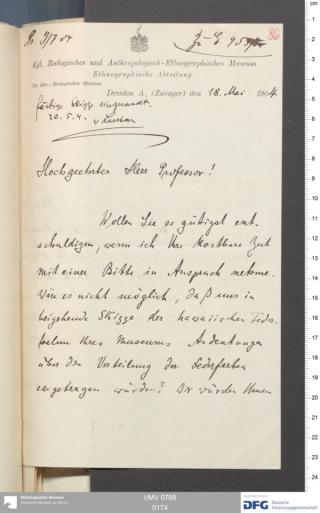 Pr. 9/7 04
Zu E. 95
86
Kgl. Zoologisches und Anthropologisch-Ethnographisches Museum
Ethnographische Abteilung
Tel. Adr.: Zoologisches Museum
Dresden A, (Zwinger) den 18. Mai 1904
farbige Skizze eingesandt.
20.5.4. v Luschan
Hochgeehrter Herr Professor!
Wollen Sie es gütigst ent-
schuldigen, wenn ich Ihre kostbare Zeit
mit einer Bitte in Anspruch nehme.
Wäre es nicht möglich, daß uns in
beigehende Skizze der hawaiischen Feder-
Ihres Museums Andeutungen
über die Verteilung der Federfarben
eingetragen würden? Wir würden Ihnen
I/MV 0768
0174
Ethnologisches Museum
Staatliche Museen zu Berlin
DFG
Deutsche
Forschungsgemeinschaft
cm
1
2
3
4
5
6
7
8
9
10
11
12
13
14
15
16
17
18
19
20
21
22
23
24